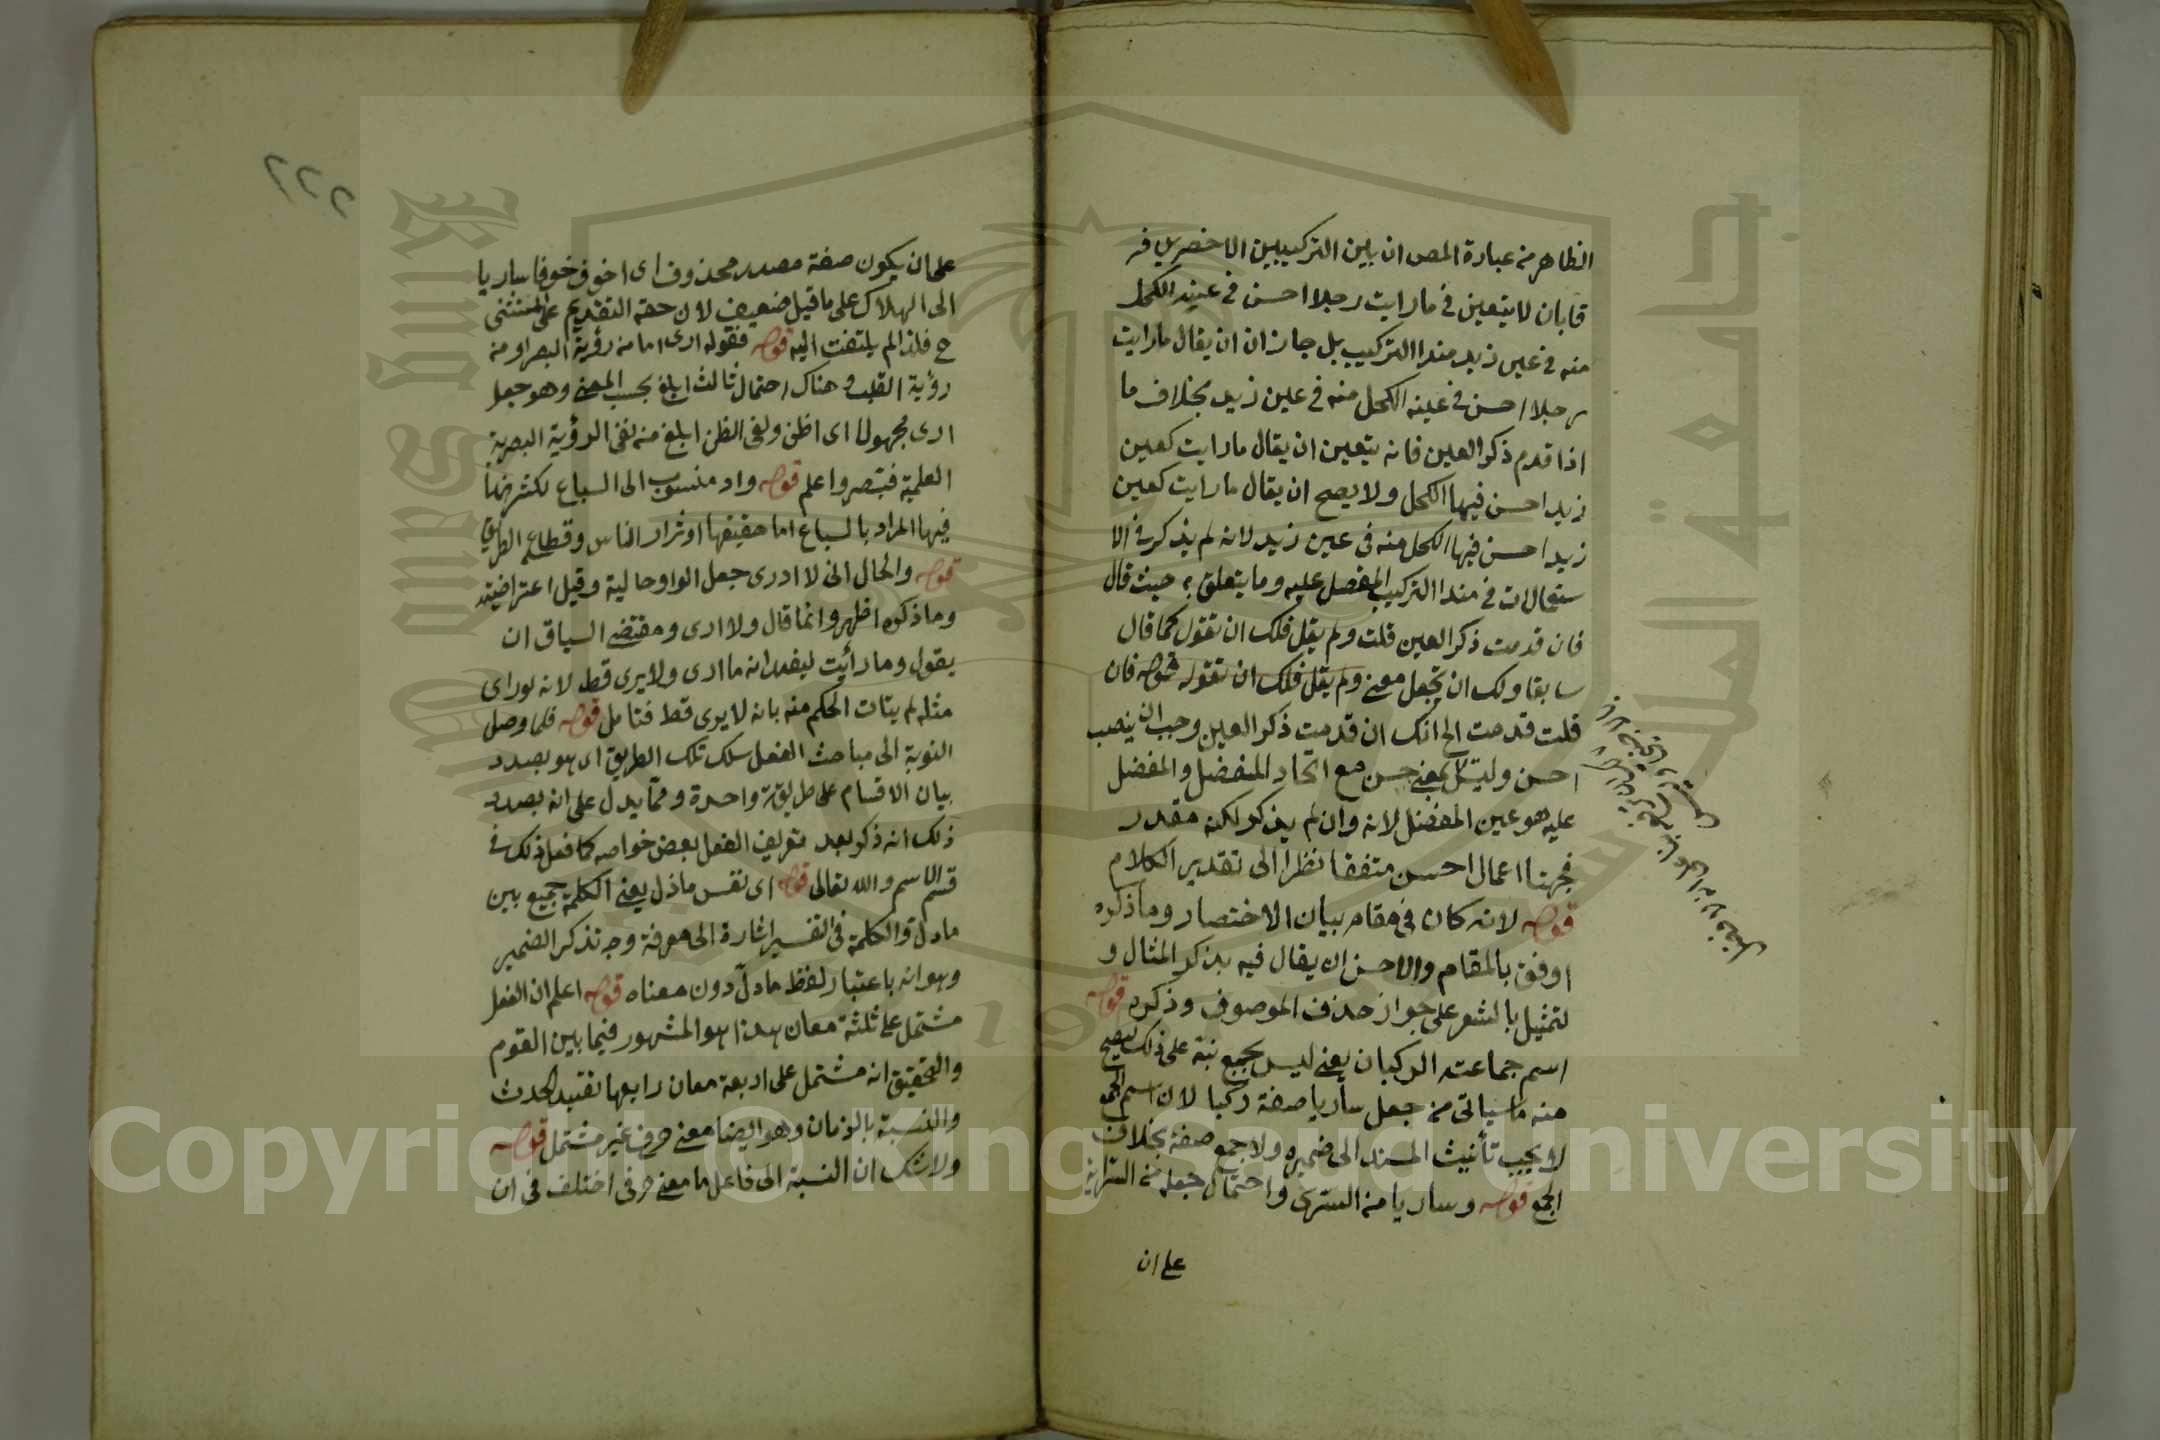 الظاهر من عبارة المص ان بين التركيبين الاخصرين فر
قا بان لا يتعين في ما رايت رجلا احسن في عينه الكحل
منه في عين زيد هذا التركيب بل جاز ان ان يقال ما رايت
رجلا احسن في عينه الكحل منه في عين زيد بخلاف ما
اذا قدم ذكر العين فانه يتعين ان يقال ما رايت كعين
زيد احسن فيها الكحل ولا يصح ان يقال ما رايت كعين
زيد احسن فيها الكحل منه في عين زيد لانه لم يذكر في الا
ستعمالات في هذا التركيب المفصل عليه وما يتعلق به حيث قال
فان قدمت ذكر العين قلت ولم يقل فلك ان تقول كما قال
سابقا ولك ان تجعل معنى ولم يقل فلك ان تقوله قوله فان
قلت قدمت الخ انك ان قدمت ذكر العين وجب ان ينصب
احسن وليت بمعنى حسن مع اتحاد المفضل والمفضل
عليه هو عين المفضل لانه وان لم يذكر لكنه مقدر
فجهنا اعمال احسن متفقا نظرا الى تقدير الكلام
قوله لانه كان في مقام بيان الاختصار وما ذكره
اوفق بالمقام والاحسن ان يقال فيه بذكر المثال و
لتمثيل بالشعر على جواز حذف الموصوف وذكره قوله
اسم جماعته الركبان يعني ليس بجمع نبه على ذلك ليصح
منه ما سياتى من جعل ساريا صفة ركبا لان اسم الجمع
لا يجب تأنيث المسند الى ضميره ولا جمع صفته بخلاف
الجمع قوله وساريا من السرى واحتمال جعله من السراية
على ان
٢٢٢
على ان يكون صفة مصدر محذوف اى اخوف خوفا ساريا
الى الهلاك على ما قيل ضعيف لان حقه التقديم على المستثنى
ح فلذا لم يلتفت اليه قوله فقوله ارى اما من رؤية البصر او من
رؤية القلب وهناك احتمال ثالث ابلغ بحسب المعنى وهو جعل
ارى مجهولا اى اظن ونفى الظن ابلغ من نفى الرؤية البصرية
العلمية فتبصر واعلم قوله واد منسوب الى السباع لكثرتها
فيها المراد بالسباع اما حقيقتها او شرار الناس وقطاع الطريق
قوله والحال انى لا ادرى جعل الواو حالية وقيل اعتراضية
وما ذكره اظهر وانما قال ولا ارى ومقتضى السياق ان
يقول وما رأيت ليفيد انه ما ارى ولا يرى قط لانه لو راى
مثله لم يتات الحكم منه بانه لا يرى قط فتامل قوله فلما وصل
النوبة الى مباحث الفعل سلك تلك الطريق اى هو بصدد
بيان الاقسام على طريقة واحدة ومما يدل على انه بصدد
ذلك انه ذكر بعد تعريف الفعل بعض خواصه كما فعل ذلك في
قسم الاسم والله تعالى قوله اى نفس ما دل يعنى الكلمة جمع بين
ما دل والكلمة فى التفسير اشارة الى معرفة وجه تذكر الضمير
وهو انه باعتبار لفظ ما دل دون معناه قوله اعلم ان الفعل
مشتمل على ثلثة معان هذا هو المشهور فيما بين القوم
والتحقيق انه مشتمل على اربعة معان رابعها تقييد الحدث
والنسبة بالزمان وهو ايضا معنى حرفى غير مشتمل قوله
ولا شك ان النسبة الى فاعل ما معنى حرفى اختلف فى ان
جامعة الملك سعود
King Saud University
1957
Copyright © King Saud University